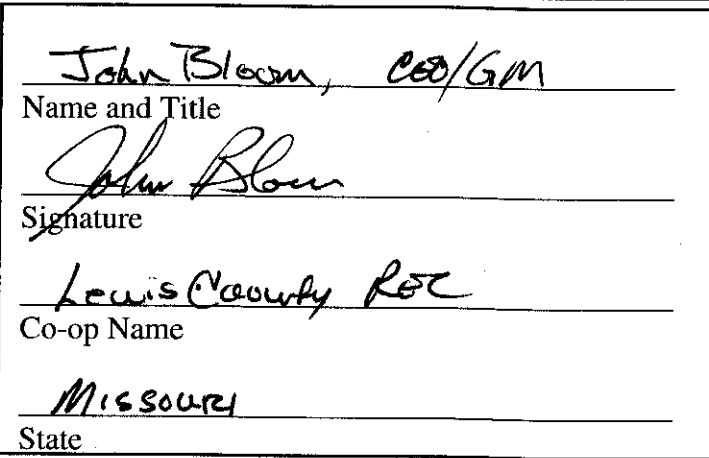 John Bloom, CEO/GM
Name and Title
John Bloom
Signature
Lewis County REC
Co-op Name
Missouri
State